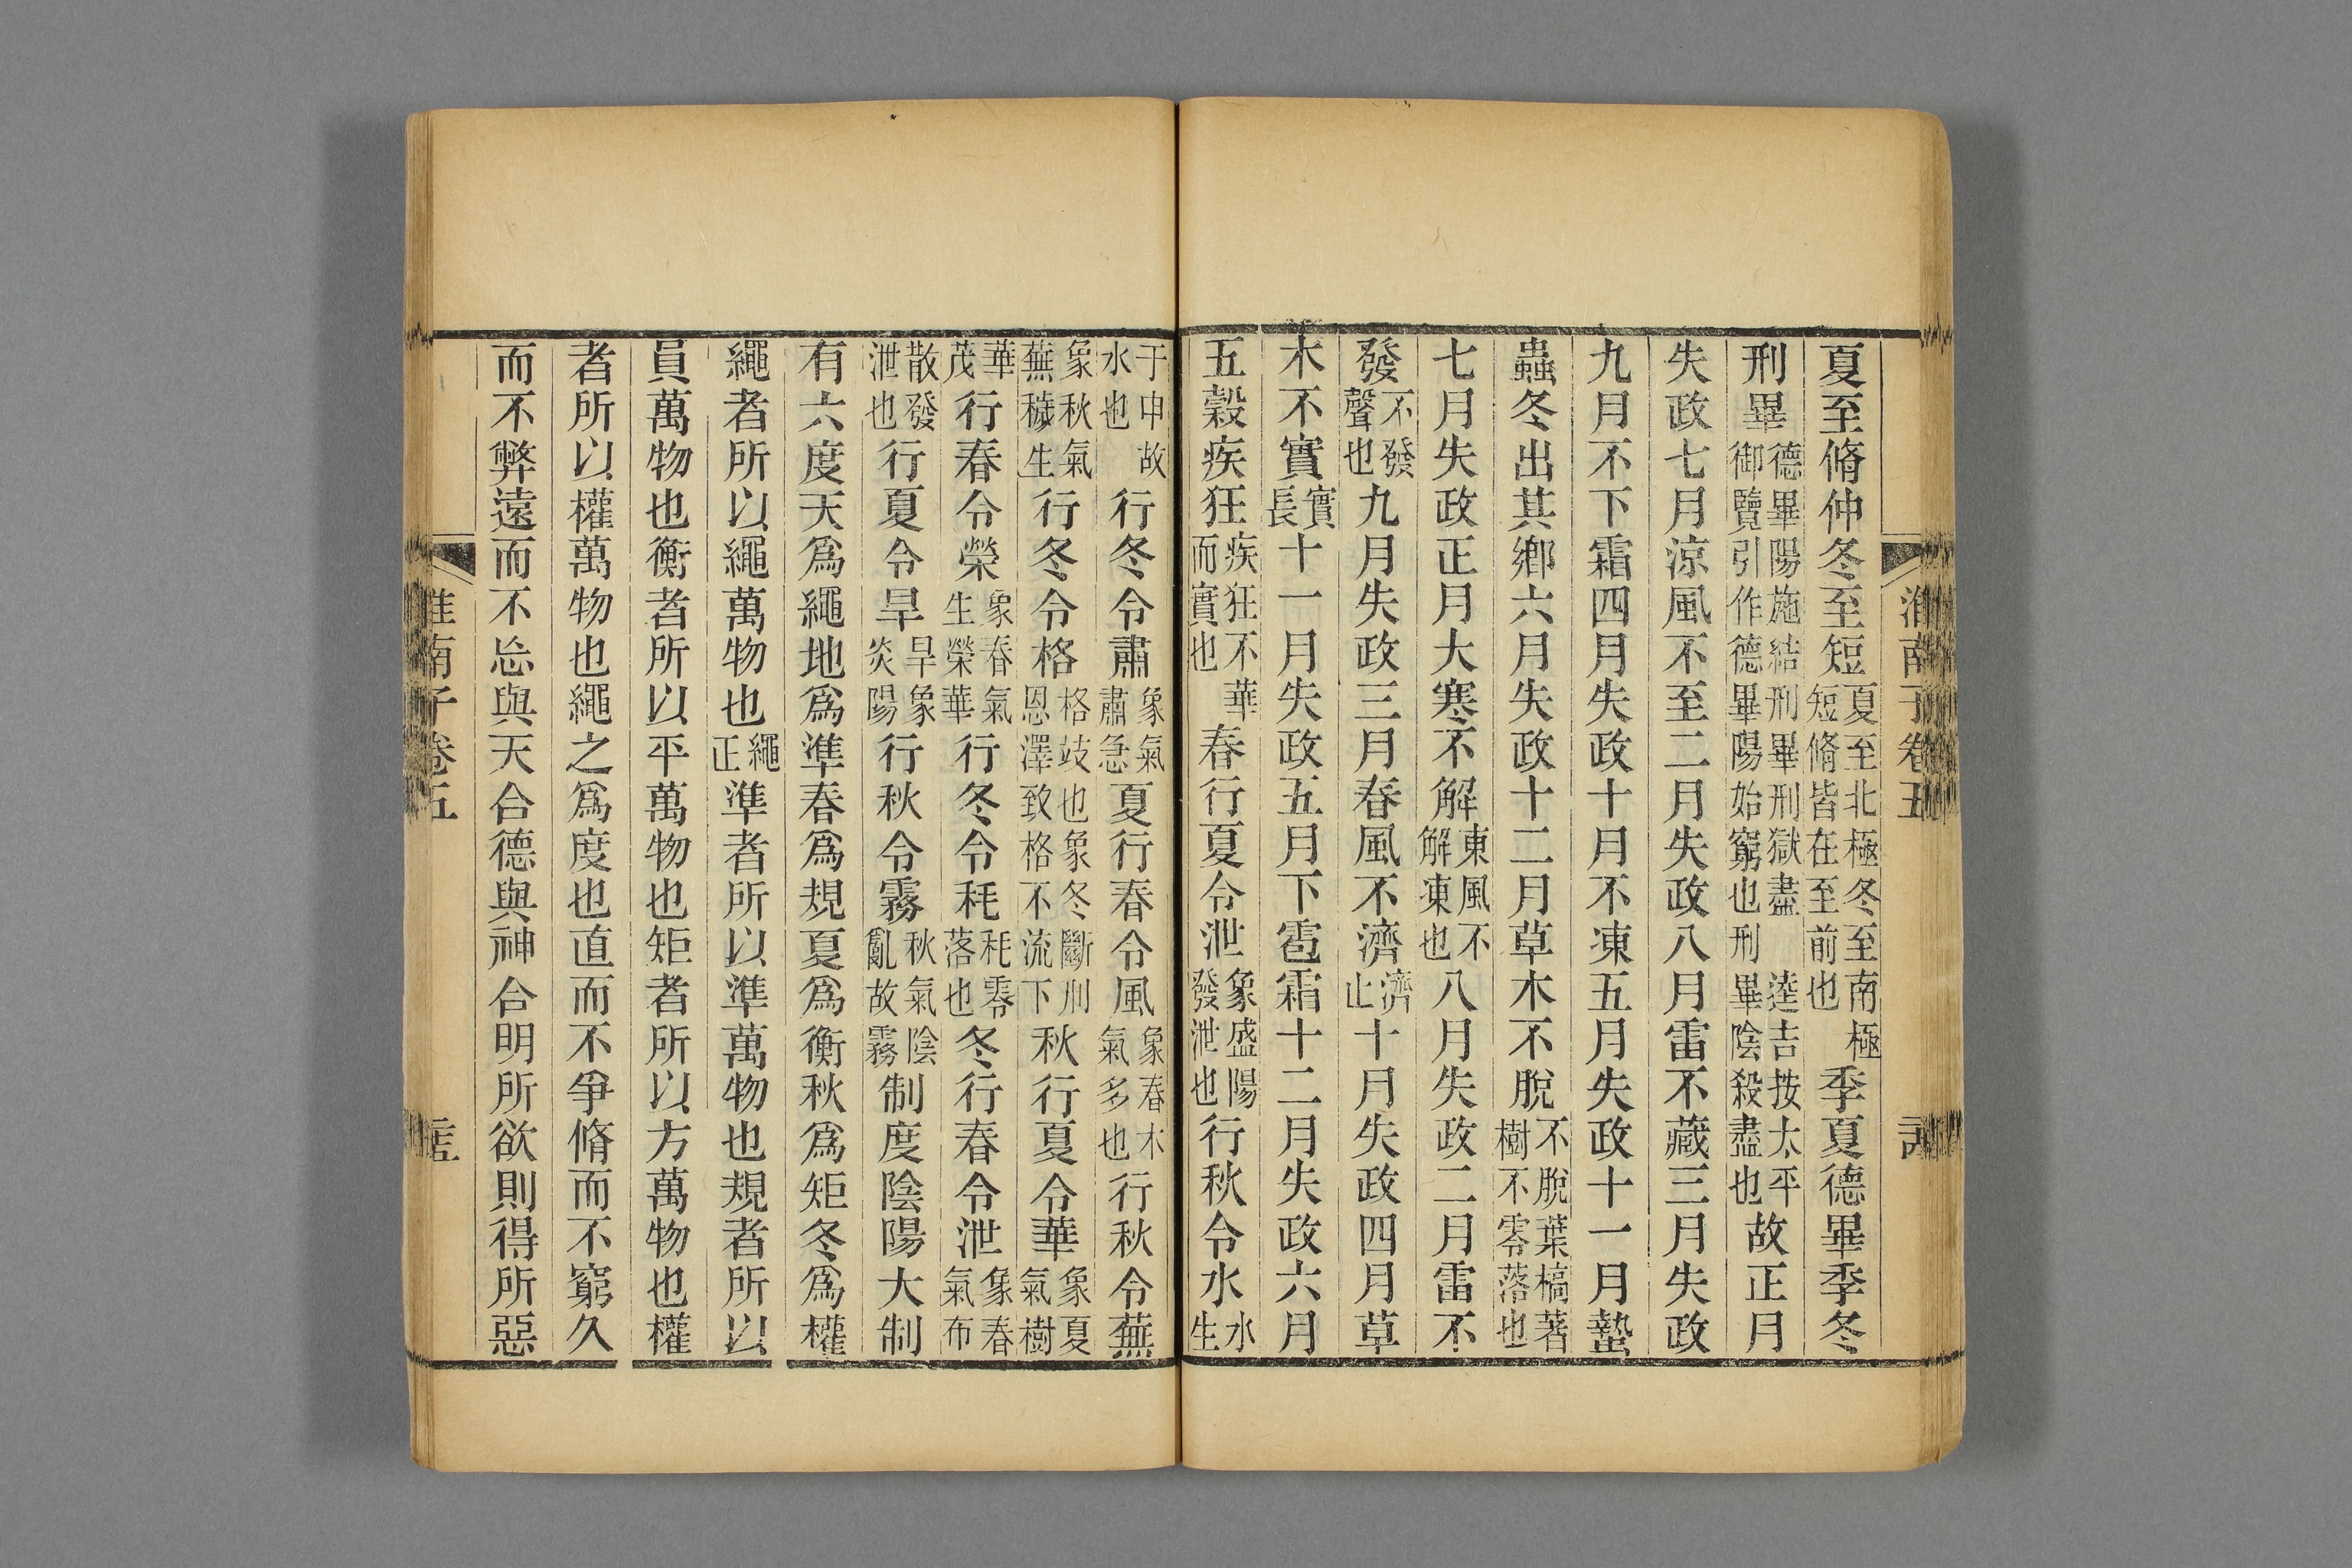 淮南子卷五
夏至脩仲冬至短夏至北極冬至南極短脩皆在至前也季夏德畢季冬
刑畢德畢陽施結刑畢刑獄盡逵吉按太平御覽引作德畢陽始窮也刑畢陰殺盡也故正月
失政七月涼風不至二月失政八月雷不藏三月失政
九月不下霜四月失政十月不凍五月失政十一月蟄
蟲冬出其鄉六月失政十二月草木不脫不脫葉槁著樹不零落也
七月失政正月大寒不解東風不解凍也八月失政二月雷不
發不發聲也九月失政三月春風不濟濟止十月失政四月草
木不實實長十一月失政五月下雹霜十二月失政六月
五穀疾狂疾狂不華而實也春行夏令泄象盛陽發泄也行秋令水水生
于申故水也行冬令肅象氣肅急夏行春令風象春木氣多也行秋令蕪
象秋氣蕪穢生行冬令格格歧也象冬斷刑恩澤致格不流下秋行夏令華象夏氣樹
華茂行春令榮象春氣生榮華行冬令秏秏零落也冬行春令泄象春氣布
散發泄也行夏令旱旱象炎陽行秋令霧秋氣陰亂故霧制度陰陽大制
有六度天爲繩地爲準春爲規夏爲衡秋爲矩冬爲權
繩者所以繩萬物也繩正準者所以準萬物也規者所以
員萬物也衡者所以平萬物也矩者所以方萬物也權
者所以權萬物也繩之爲度也直而不爭脩而不窮久
而不弊遠而不忘與天合德與神合明所欲則得所惡
淮南子卷五